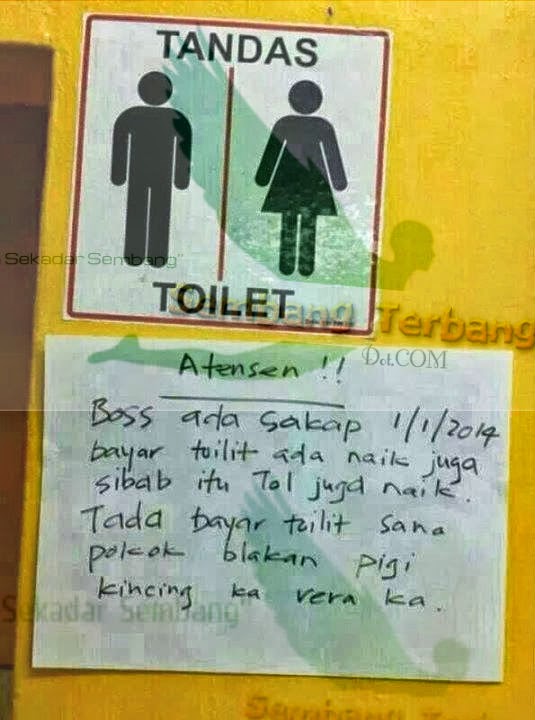 TANDAS
Sekadar Sembang"
TOILET
Sembang Terbang
Dot.COM
Atensen !!
Boss ada sakap 1/1/2014
bayar toilit ada naik juga
sibab itu Tol juga naik.
Tada bayar toilit sana
pokok blakan pigi
kincing ka vera ka.
Sekadar Sembang"
Sembang